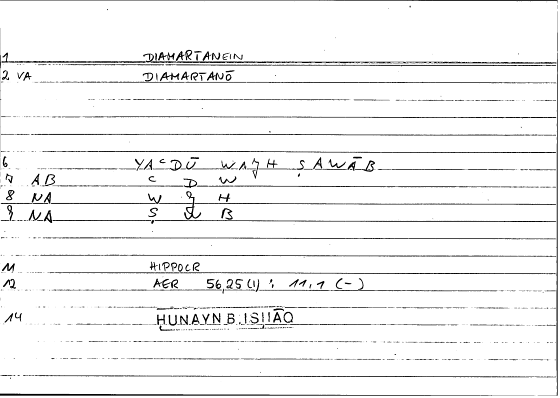 1 DIAMARTANEIN
2 VA DIAMARTANŌ
6 YAʿDŪ WAǦH ṢAWĀB
7 AB ʿ D W
8 NA W Ǧ H
9 NA Ṣ W B
11 HIPPOCR
12 AER 56,25(1) : 11,1 (-)
14 ḤUNAYN B. ISḤĀQ